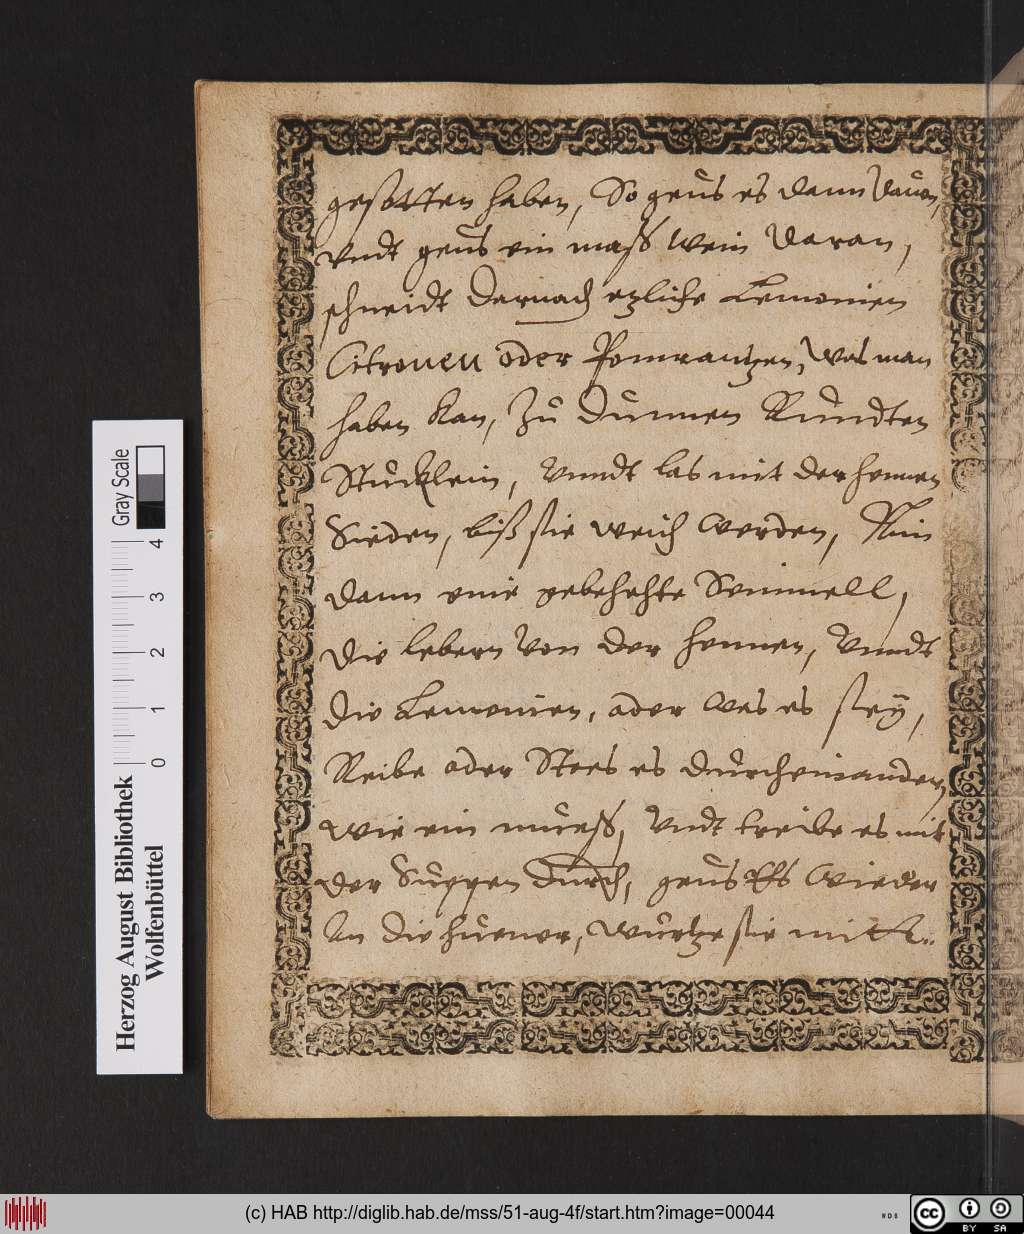 gesotten haben, So geus es dann dauon,
vndt geus ein maß Wein daran,
schneidt darnach etzliche Lemonien
Citronen oder Pomrantzen, Was man
haben kan, zu dunnen Rundten
Stucklein, Vnndt las mit der hennen
Sieden, biß sie weich werden, Nim
dann eine gebehehte Semmell,
die lebern von der hennen, Vnndt
die Lemonien, oder was es seÿ,
Reibe oder Stoes es durcheinandern
wie ein mueß, Vndt treibe es mit
der Suppen durch, geus wieder
An die huener, würtze sie mitt
Gray Scale
4
3
2
1
0
Herzog August Bibliothek
Wolfenbüttel
(c) HAB http://diglib.hab.de/mss/51-aug-4f/start.htm?image=00044
WDB
cc
BY SA